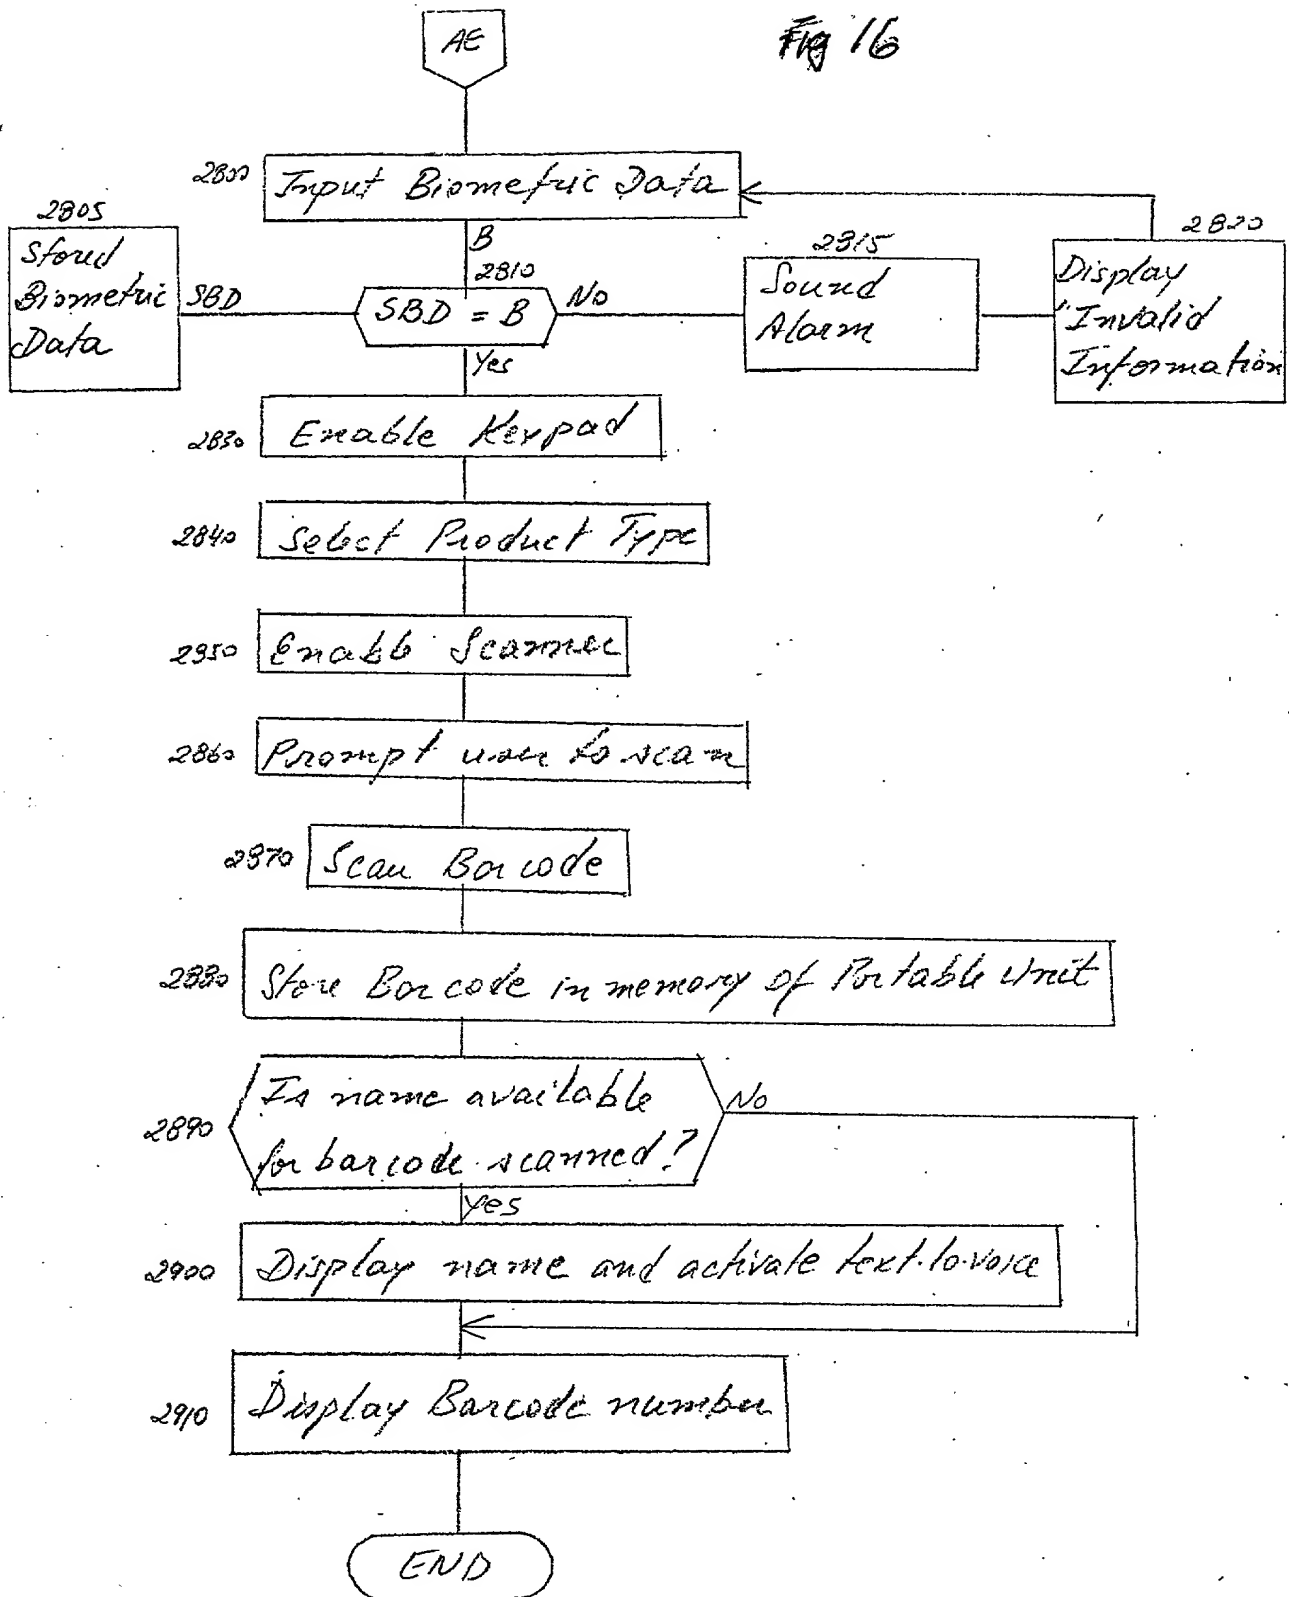 AE
Fig 16
2800
Input Biometric Data
2805
Stored
Biometric
Data
SBD
B
2810
SBD = B
No
2815
Sound
Alarm
2820
Display
"Invalid
Information
Yes
2830
Enable Keypad
2840
Select Product Type
2850
Enable Scanner
2860
Prompt user to scan
2870
Scan Barcode
2880
Store Barcode in memory of Portable Unit
2890
Is name available
for barcode scanned?
No
Yes
2900
Display name and activate text-to-voice
2910
Display Barcode number
END